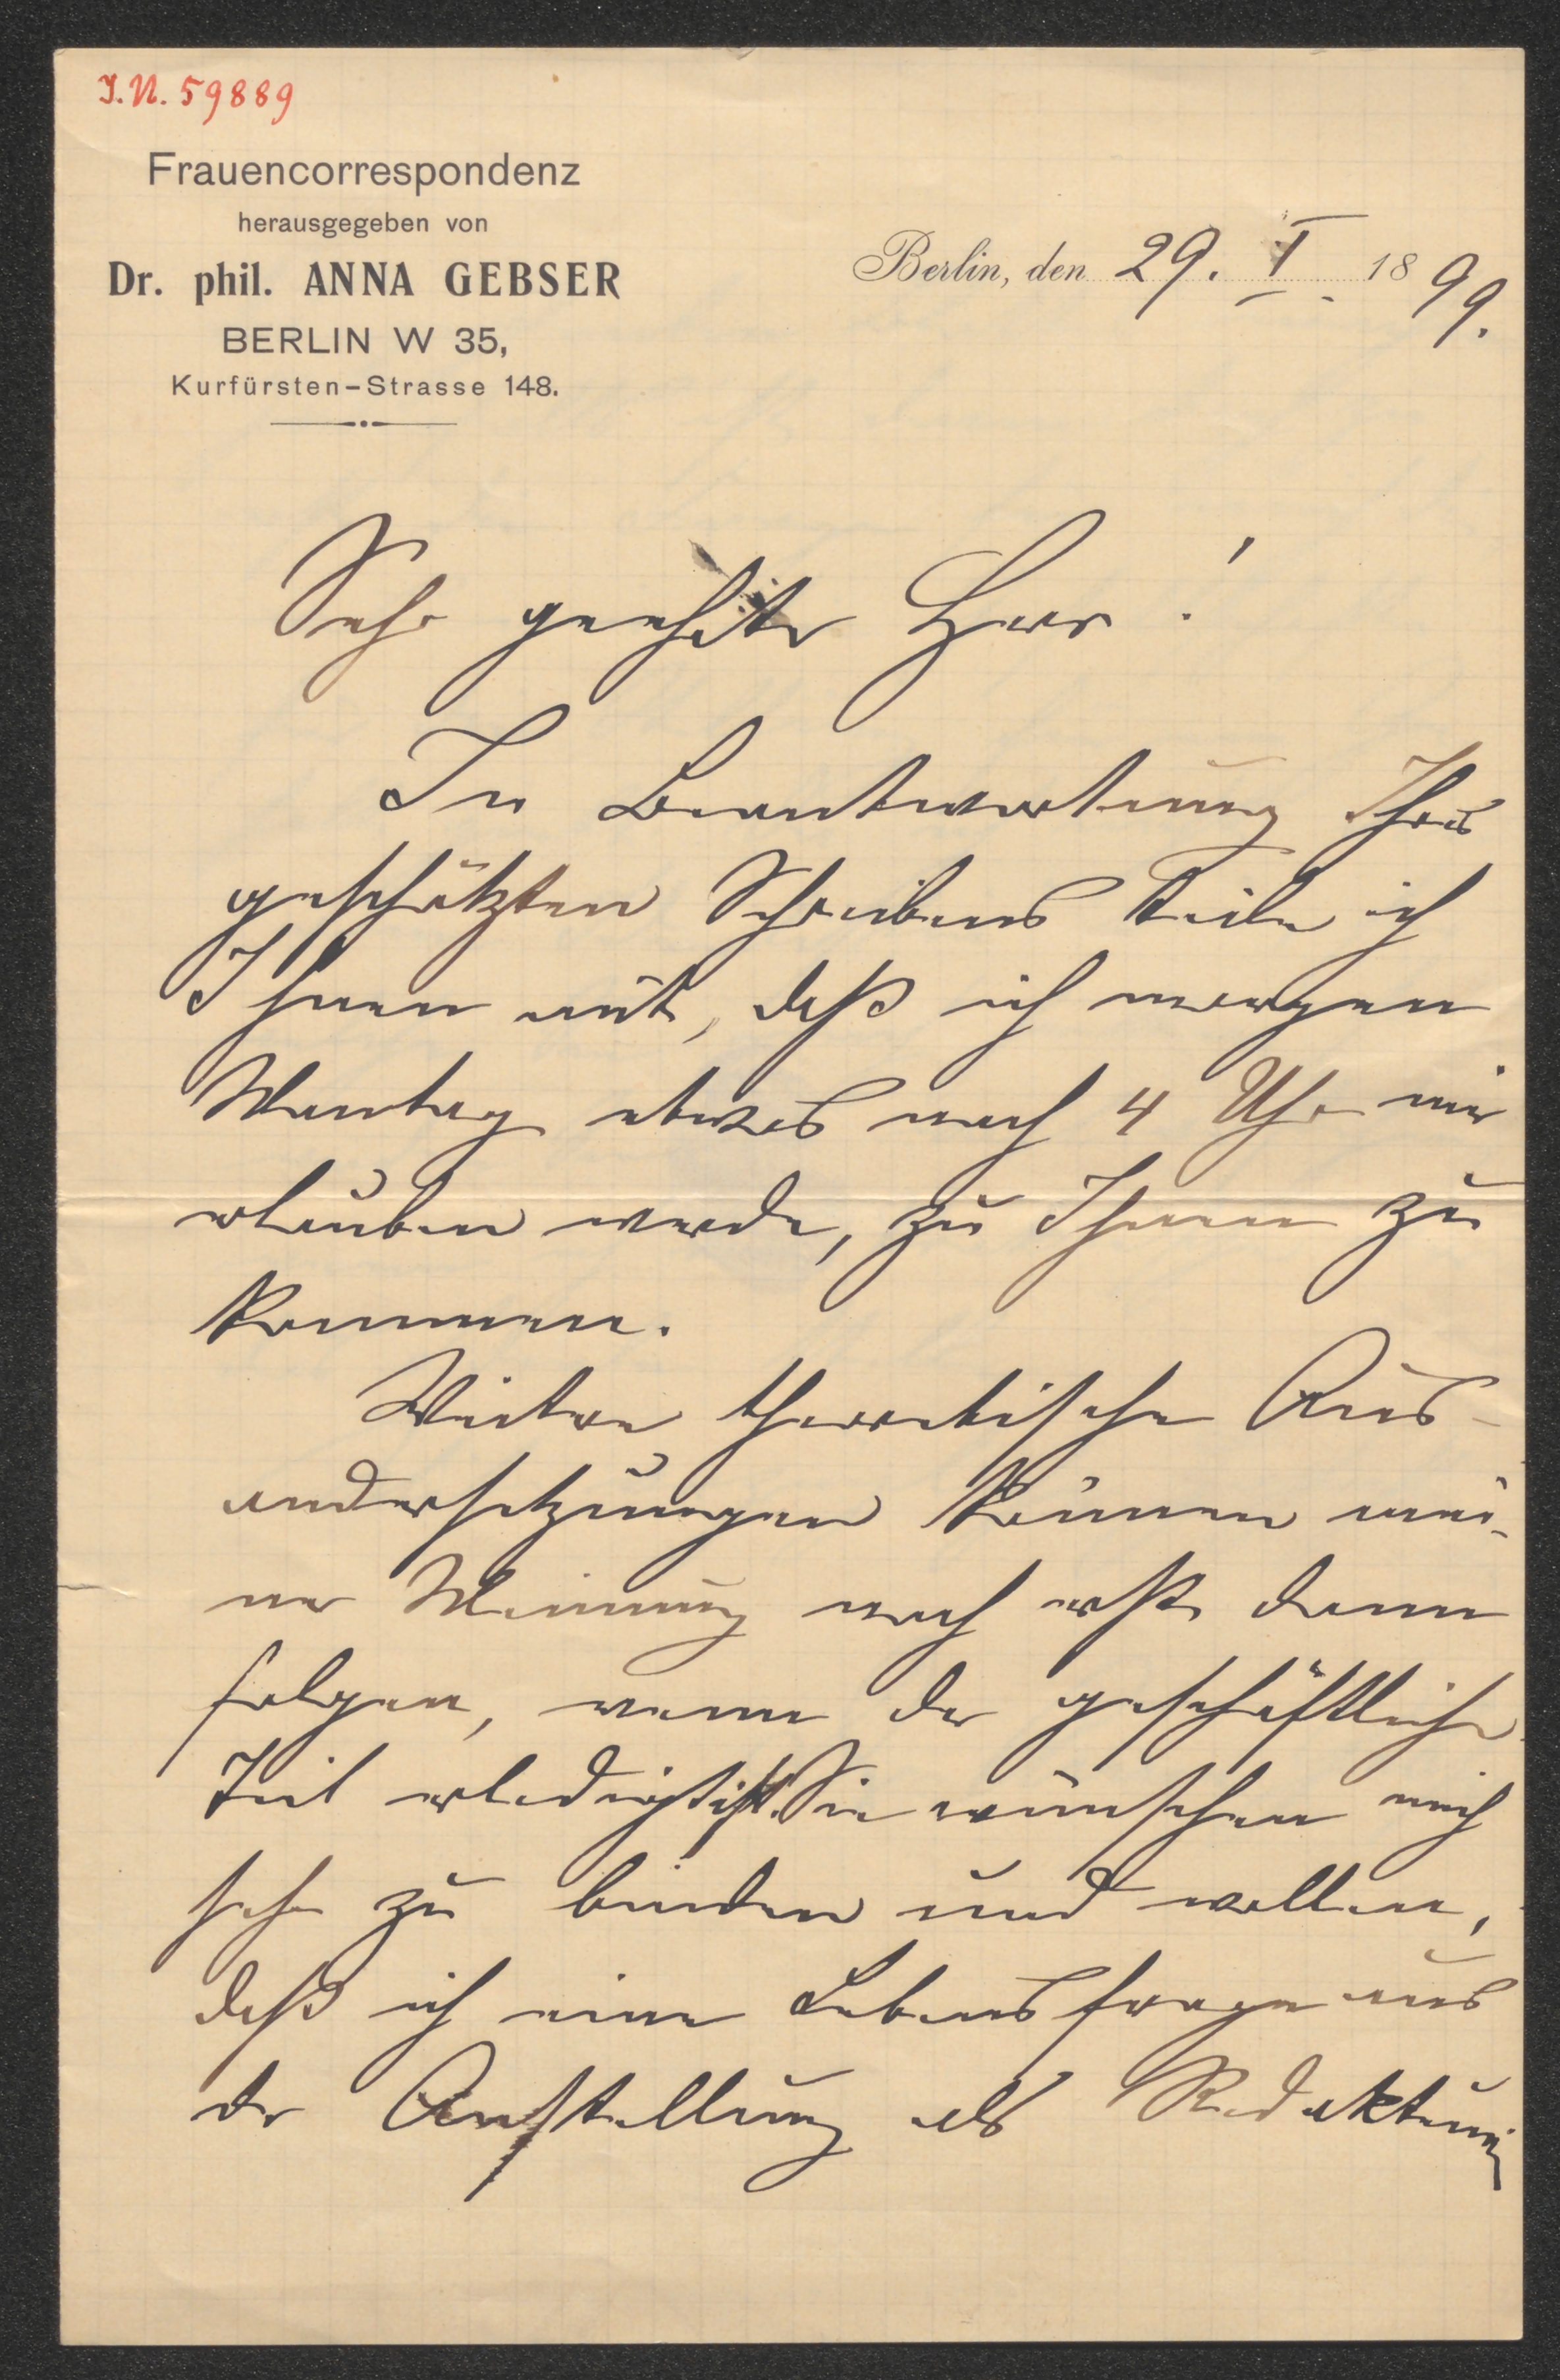 I.N. 59889
Frauencorrespondenz
herausgegeben von
Dr. phil. ANNA GEBSER
BERLIN W 35,
Kurfürsten-Strasse 148.
Berlin, den 29. I. 1899.
Sehr geehrter Herr!
In Beantwortung Ihres
geschätzten Schreibens teile ich
Ihnen mit, daß ich morgen
Montag etwas nach 4 Uhr mir
erlauben werde, zu Ihnen zu
kommen.
Weitere theoretische Aus-
andersetzungen können mei-
ner Meinung nach erst dann
folgen, wenn der geschäftliche
Teil erledigt ist. Sie wünschen mich
sehr zu binden und wollen,
daß ich eine Lebensfrage aus
der Anstellung als